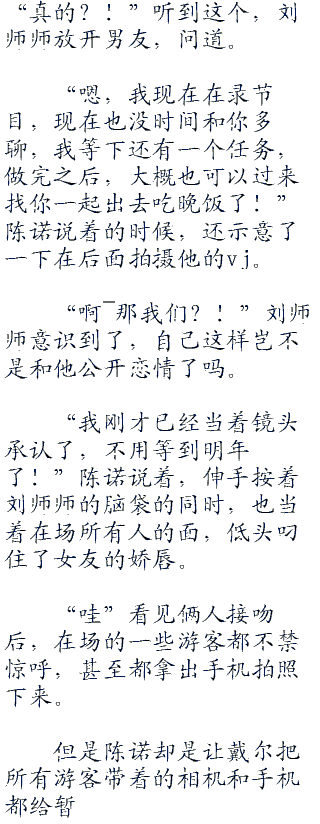 “真的？！”听到这个，刘
师师放开男友，问道。
“嗯，我现在在录节
目，现在也没时间和你多
聊，我等下还有一个任务，
做完之后，大概也可以过来
找你一起出去吃晚饭了！”
陈诺说着的时候，还示意了
一下在后面拍摄他的vj。
“啊¯那我们？！”刘师
师意识到了，自己这样岂不
是和他公开恋情了吗。
“我刚才已经当着镜头
承认了，不用等到明年
了！”陈诺说着，伸手按着
刘师师的脑袋的同时，也当
着在场所有人的面，低头叼
住了女友的娇唇。
“哇”看见俩人接吻
后，在场的一些游客都不禁
惊呼，甚至都拿出手机拍照
下来。
但是陈诺却是让戴尔把
所有游客带着的相机和手机
都给暂